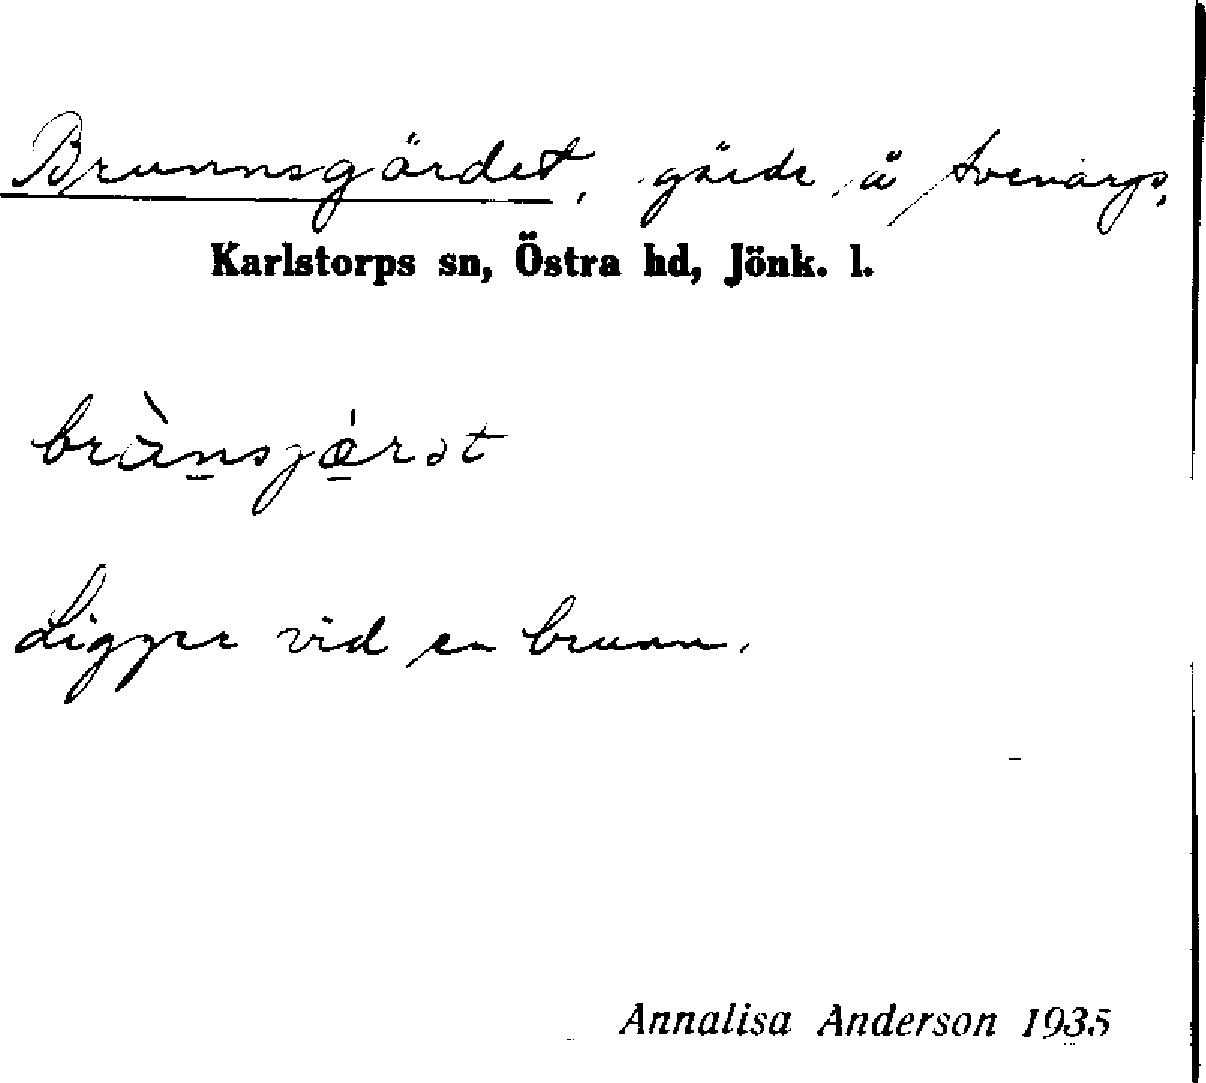 Brunnsgärdet, gärde å Svenarps,
Karlstorps sn, Östra hd, Jönk. l.
Ligger vid en brunn.
Annalisa Anderson 1935